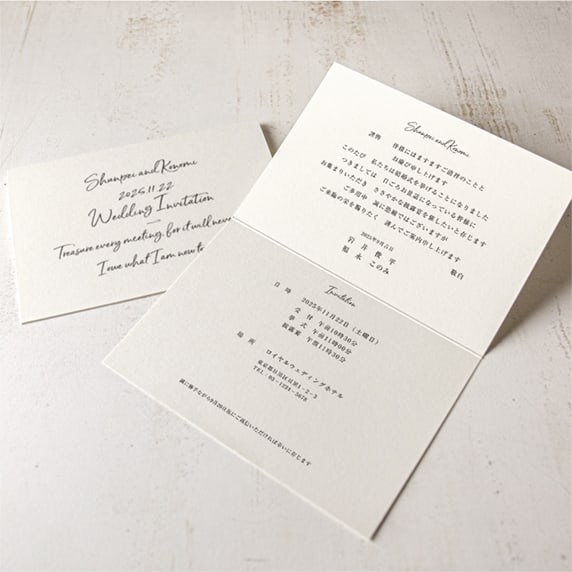 Shunpei and Konomi
2025.11.22
Wedding Invitation
Treasure every meeting, for it will never
I owe what I am now to
Shunpei and Konomi
謹啓 皆様にはますますご清祥のことと
お慶び申し上げます
このたび 私たちは結婚式を挙げることになりました
つきましては 日ごろお世話になっている皆様に
お集まりいただき ささやかな披露宴を催したいと存じます
ご多用中 誠に恐縮ではございますが
ご来臨の栄を賜りたく 謹んでご案内申し上げます
敬白
2025年9月吉日
岩井 俊平
福永 このみ
Invitation
日時 2025年11月22日(土曜日)
受付 午前10時30分
挙式 午前11時00分
披露宴 午前11時30分
場所 ロイヤルウェディングホテル
東京都目黒区目黒1-2-3
TEL 03-1234-5678
誠に勝手ながら9月20日迄にご返信いただければ幸いに存じます